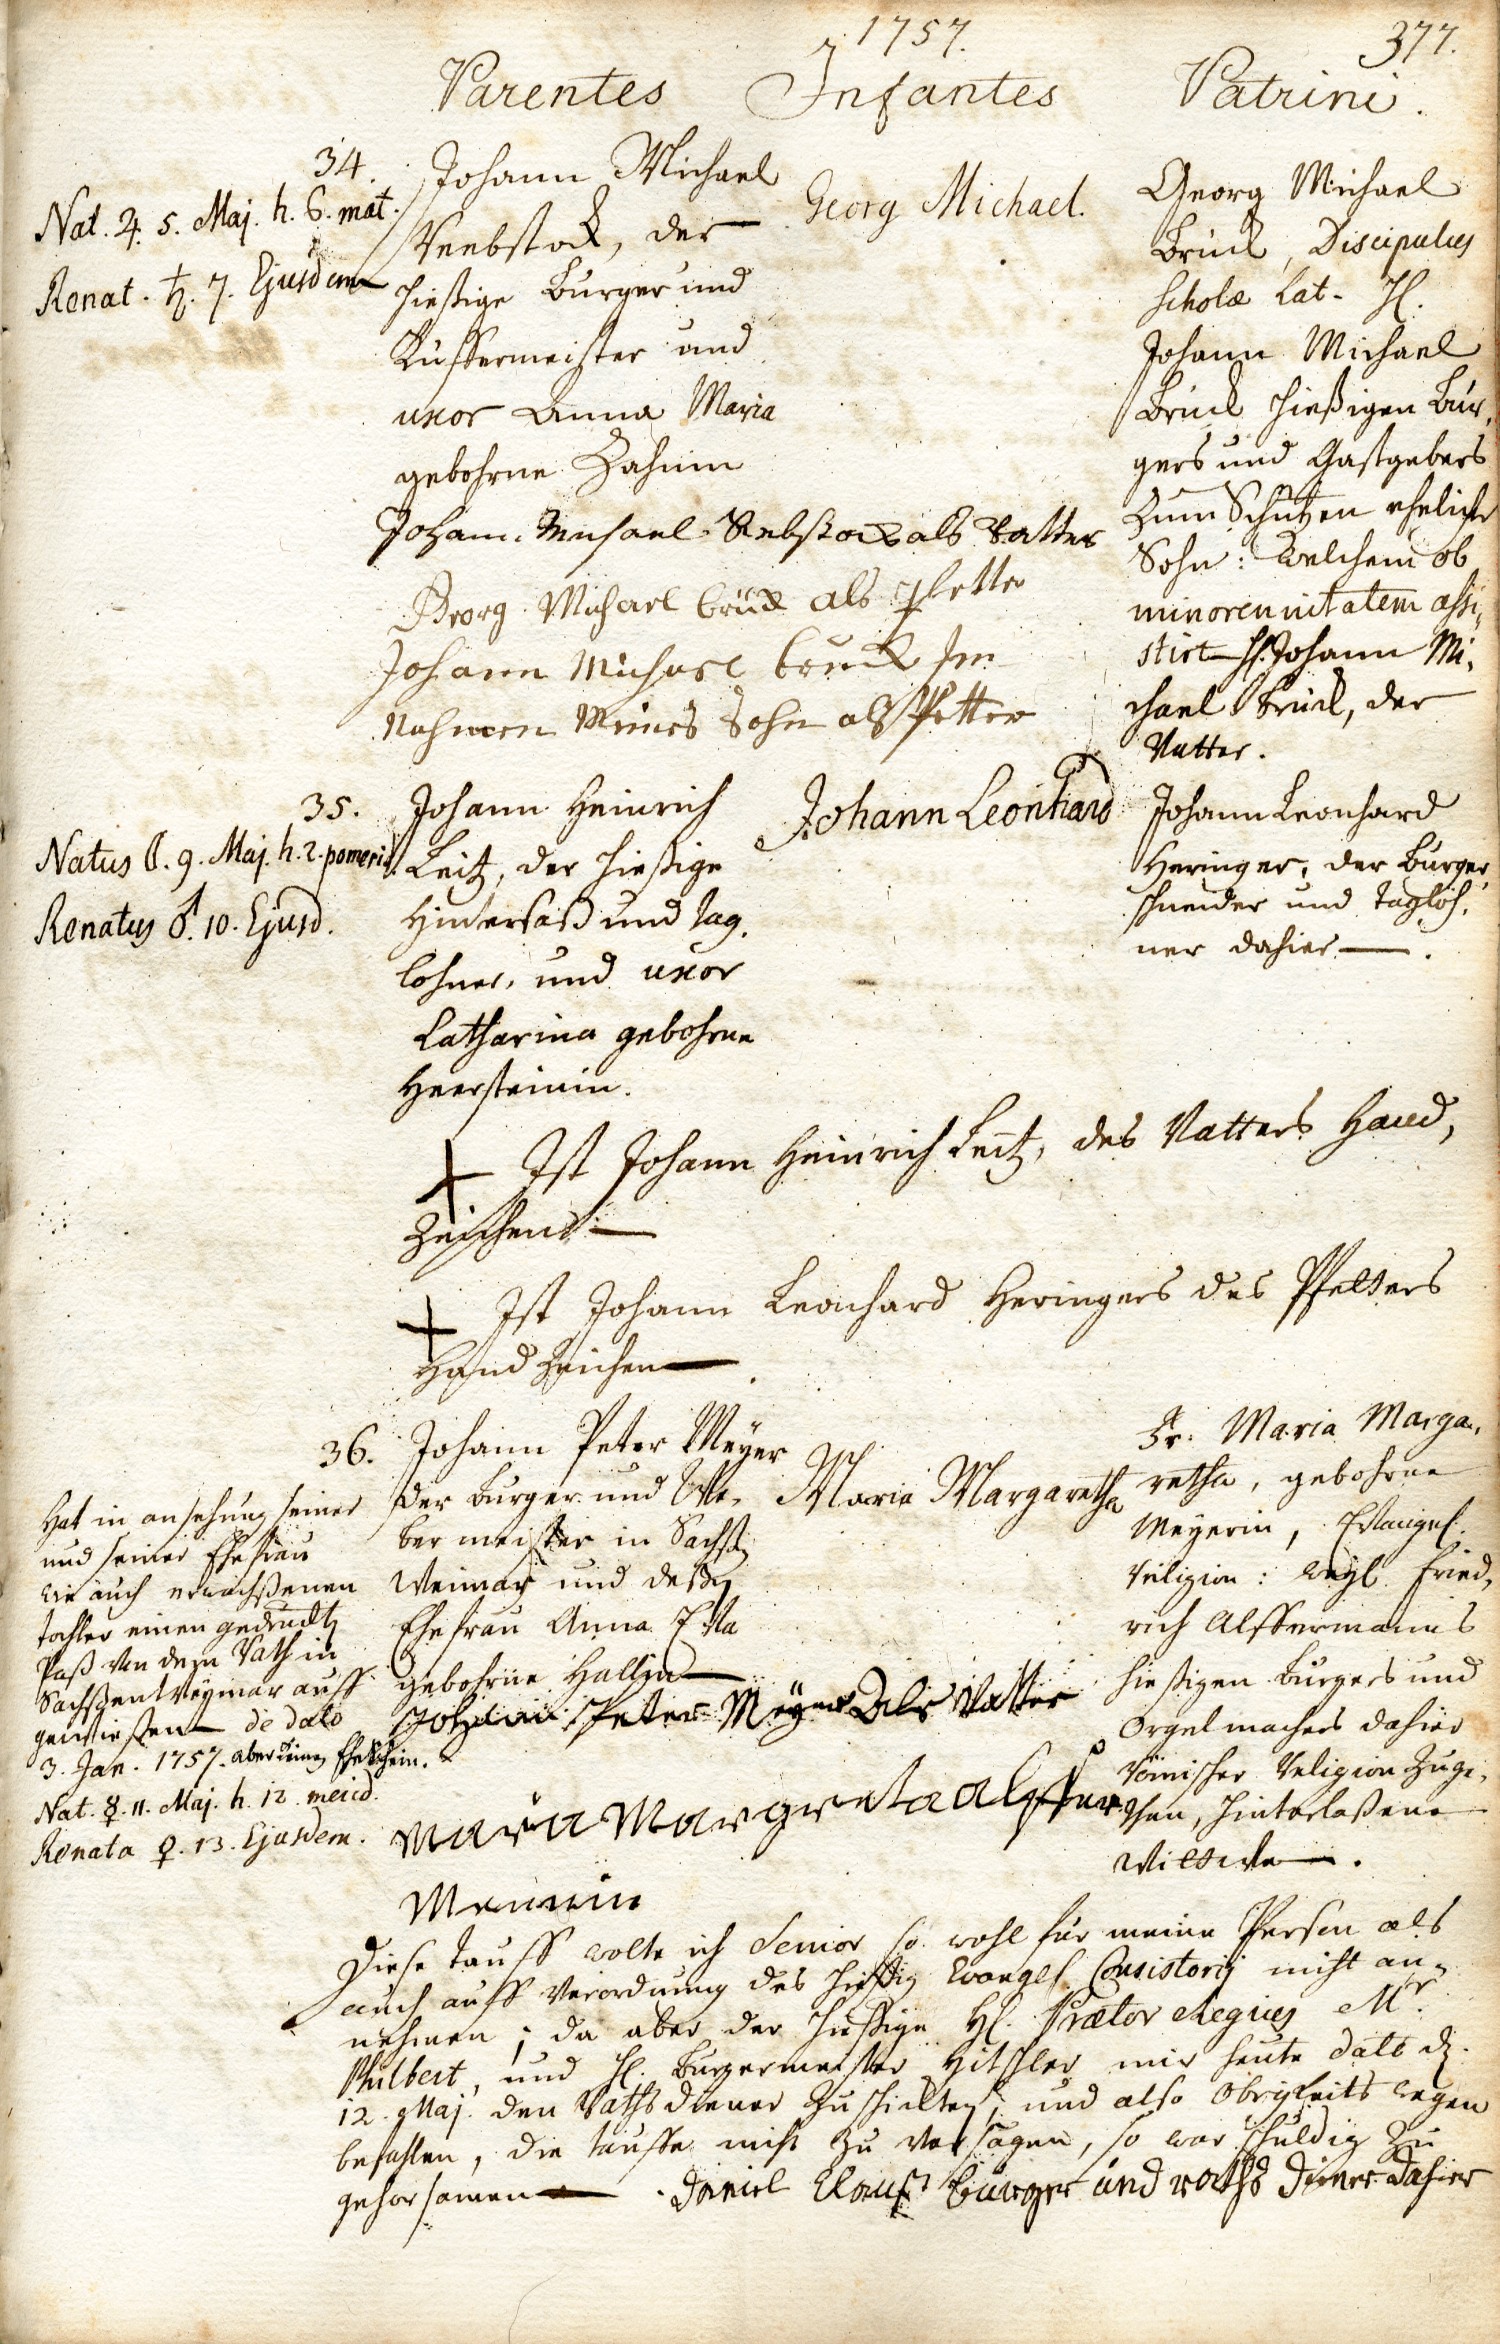 1757.
377.
Parentes Infantes Patrini.
34.
Nat. ♃. 5. Maj. h. 6. mat.
Renat. ♄. 7. Ejusdem
Johann Michael
Reebstock, der
hießige Burger und
Küffermeister und
uxor Anna Maria
gebohrne Zahnin
Georg Michael.
Georg Michael
Brück, Discipulus
Scholæ Lat. H.
Johann Michael
Brück hießigen Bur,
gers und Gastgebers
Zum Schützen ehelicher
Sohn: Welchem ob
minorennitatem assi,
stirt H. Johann Mi,
chael Brück, der
Vatter.
Johann Michael Rebstock als Vatter
Georg Michael brück als Pfetter
Johann Michael brück Im
Nahmen Meines Sohn als Pfetter
35.
Natus ☾. 9. Maj. h. 2. pomerid.
Renatus ♂. 10. Ejusd.
Johann Heinrich
Leitz, der hießige
Hintersaß und Tag,
lohner, und uxor
Catharina gebohrne
Heersteinin.
Johann Leonhard
Johann Leonhard
Heringer, der Burger,
schneider und Taglöh,
ner dahier.
+ Ist Johann Heinrich Leitz, des Vatters Hand,
Zeichen
+ Ist Johann Leonhard Heringers des Pfetters
Hand Zeichen.
36.
Hat in ansehung seiner
und seiner Ehefrau
wie auch erwachßenen
tochter einen gedruckten
Paß von dem Rath in
Sachßen Weymar auff
gewießen de dato
3. Jan. 1757. aber keinen Eheschein.
Nat. ☿. 11. Maj. h. 12. merid.
Renata ♀. 13. Ejusdem.
Johann Peter Meyer
der Burger und We,
bermeister in Sachß
Weimar und deßen
Ehefrau Anna Eva
gebohrne Hallin
Maria Margaretha
Fr. Maria Marga,
retha, gebohrne
Meyerin, Evangel.
Religion: weyl. Fried,
rich Alffermanns
hießigen Burgers und
Orgelmachers dahier
Römischer Religion Zuge,
than, hinterlaßene
Wittwe.
Johann Peter Meyer Als Vatter
Maria Margreta alffer
Mannin
Diese Tauff wolte ich Senior so wohl für meine Person als
auch auff Verordnung des hießig Evangel. Consistorij nicht an,
nehmen; da aber der hießige H. Prætor Regius Mr.
Philbert, und H. Burgermeister Hitschler mir heute dato d.
12. Maj. den Rathsdiener Zuschickten, und also Obrigkeits wegen
befahlen, die tauffe nicht zu versagen, so war schuldig zu
gehorsamen. Daniel Clauß burger und raths Diener Dahier